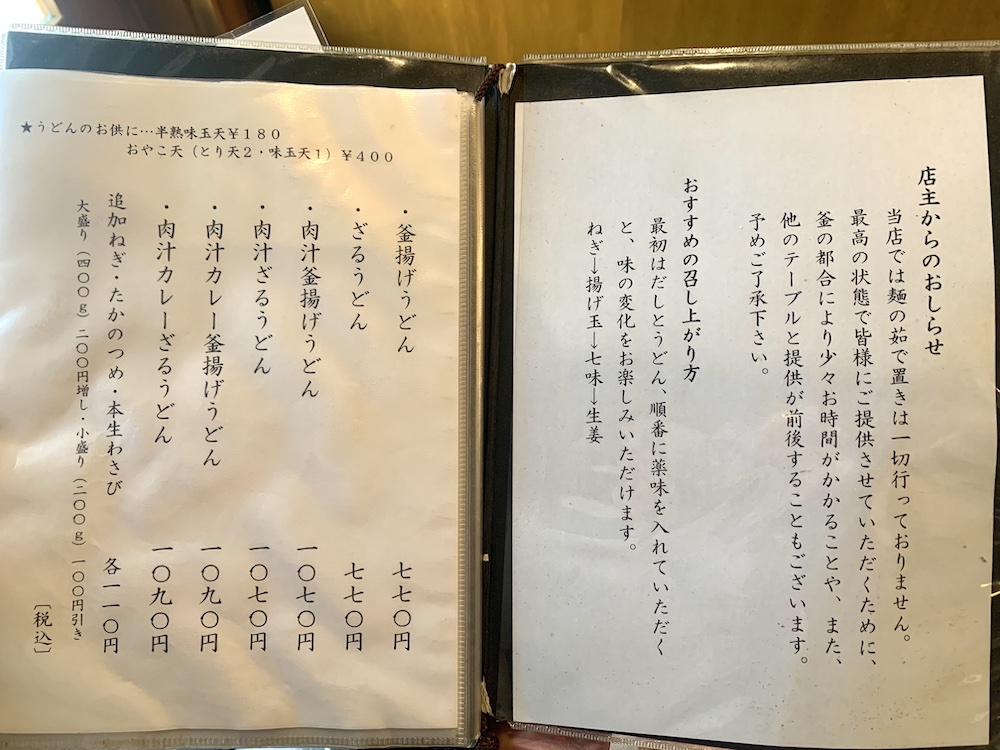 店主からのおしらせ
当店では麺の茹で置きは一切行っておりません。
最高の状態で皆様にご提供させていただくために、
釜の都合により少々お時間がかかることや、また、
他のテーブルと提供が前後することもございます。
予めご了承下さい。
おすすめの召し上がり方
最初はだしとうどん、順番に薬味を入れていただく
と、味の変化をお楽しみいただけます。
ねぎ→揚げ玉→七味→生姜
★うどんのお供に…半熟味玉天¥180
おやこ天(とり天2・味玉天1)¥400
・釜揚げうどん 七七〇円
・ざるうどん 七七〇円
・肉汁釜揚げうどん 一〇七〇円
・肉汁ざるうどん 一〇七〇円
・肉汁カレー釜揚げうどん 一〇九〇円
・肉汁カレーざるうどん 一〇九〇円
追加ねぎ・たかのつめ・本生わさび 各一一〇円
大盛り(四〇〇g)二〇〇円増し・小盛り(二〇〇g)一〇〇円引き
〔税込〕